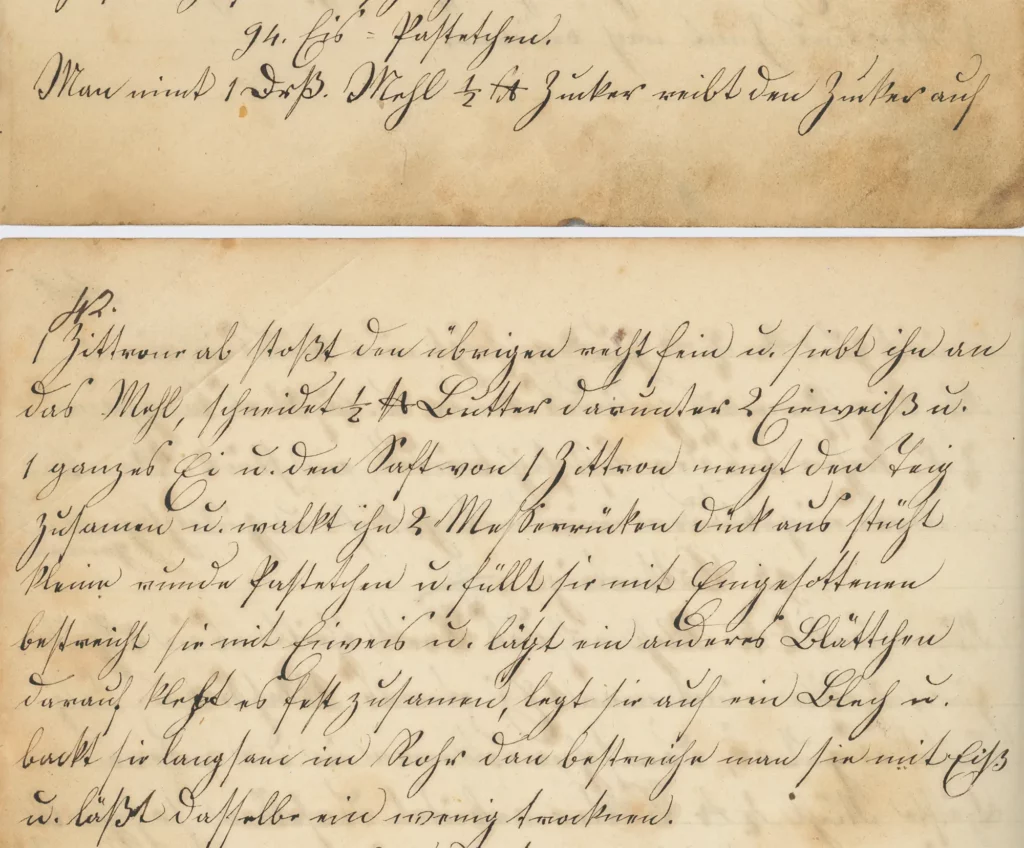 94. Eis = Pastetchen.
Man nimt 1 Drß. Mehl ½ ℔ Zucker reibt den Zucker auf
42.
1 Zittrone ab stoßt den übrigen recht fein u. siebt ihn an
das Mehl, schneidet ½ ℔ Butter darunter 2 Eierweiß u.
1 ganzes Ei u. den Saft von 1 Zittron mengt den Teig
zusamen u. walkt ihn 2 Messerrücken dick aus stücht
kleine runde Pastetchen u. füllt sie mit Eingesottenen
bestreicht sie mit Eiweis u. läßt ein anderes Blättchen
darauf, klebt es fest zusamen, legt sie auf ein Blech u.
backt sie langsam im Rohr dan bestreiche man sie mit Eiß
u. läßt dasselbe ein wenig trocknen.